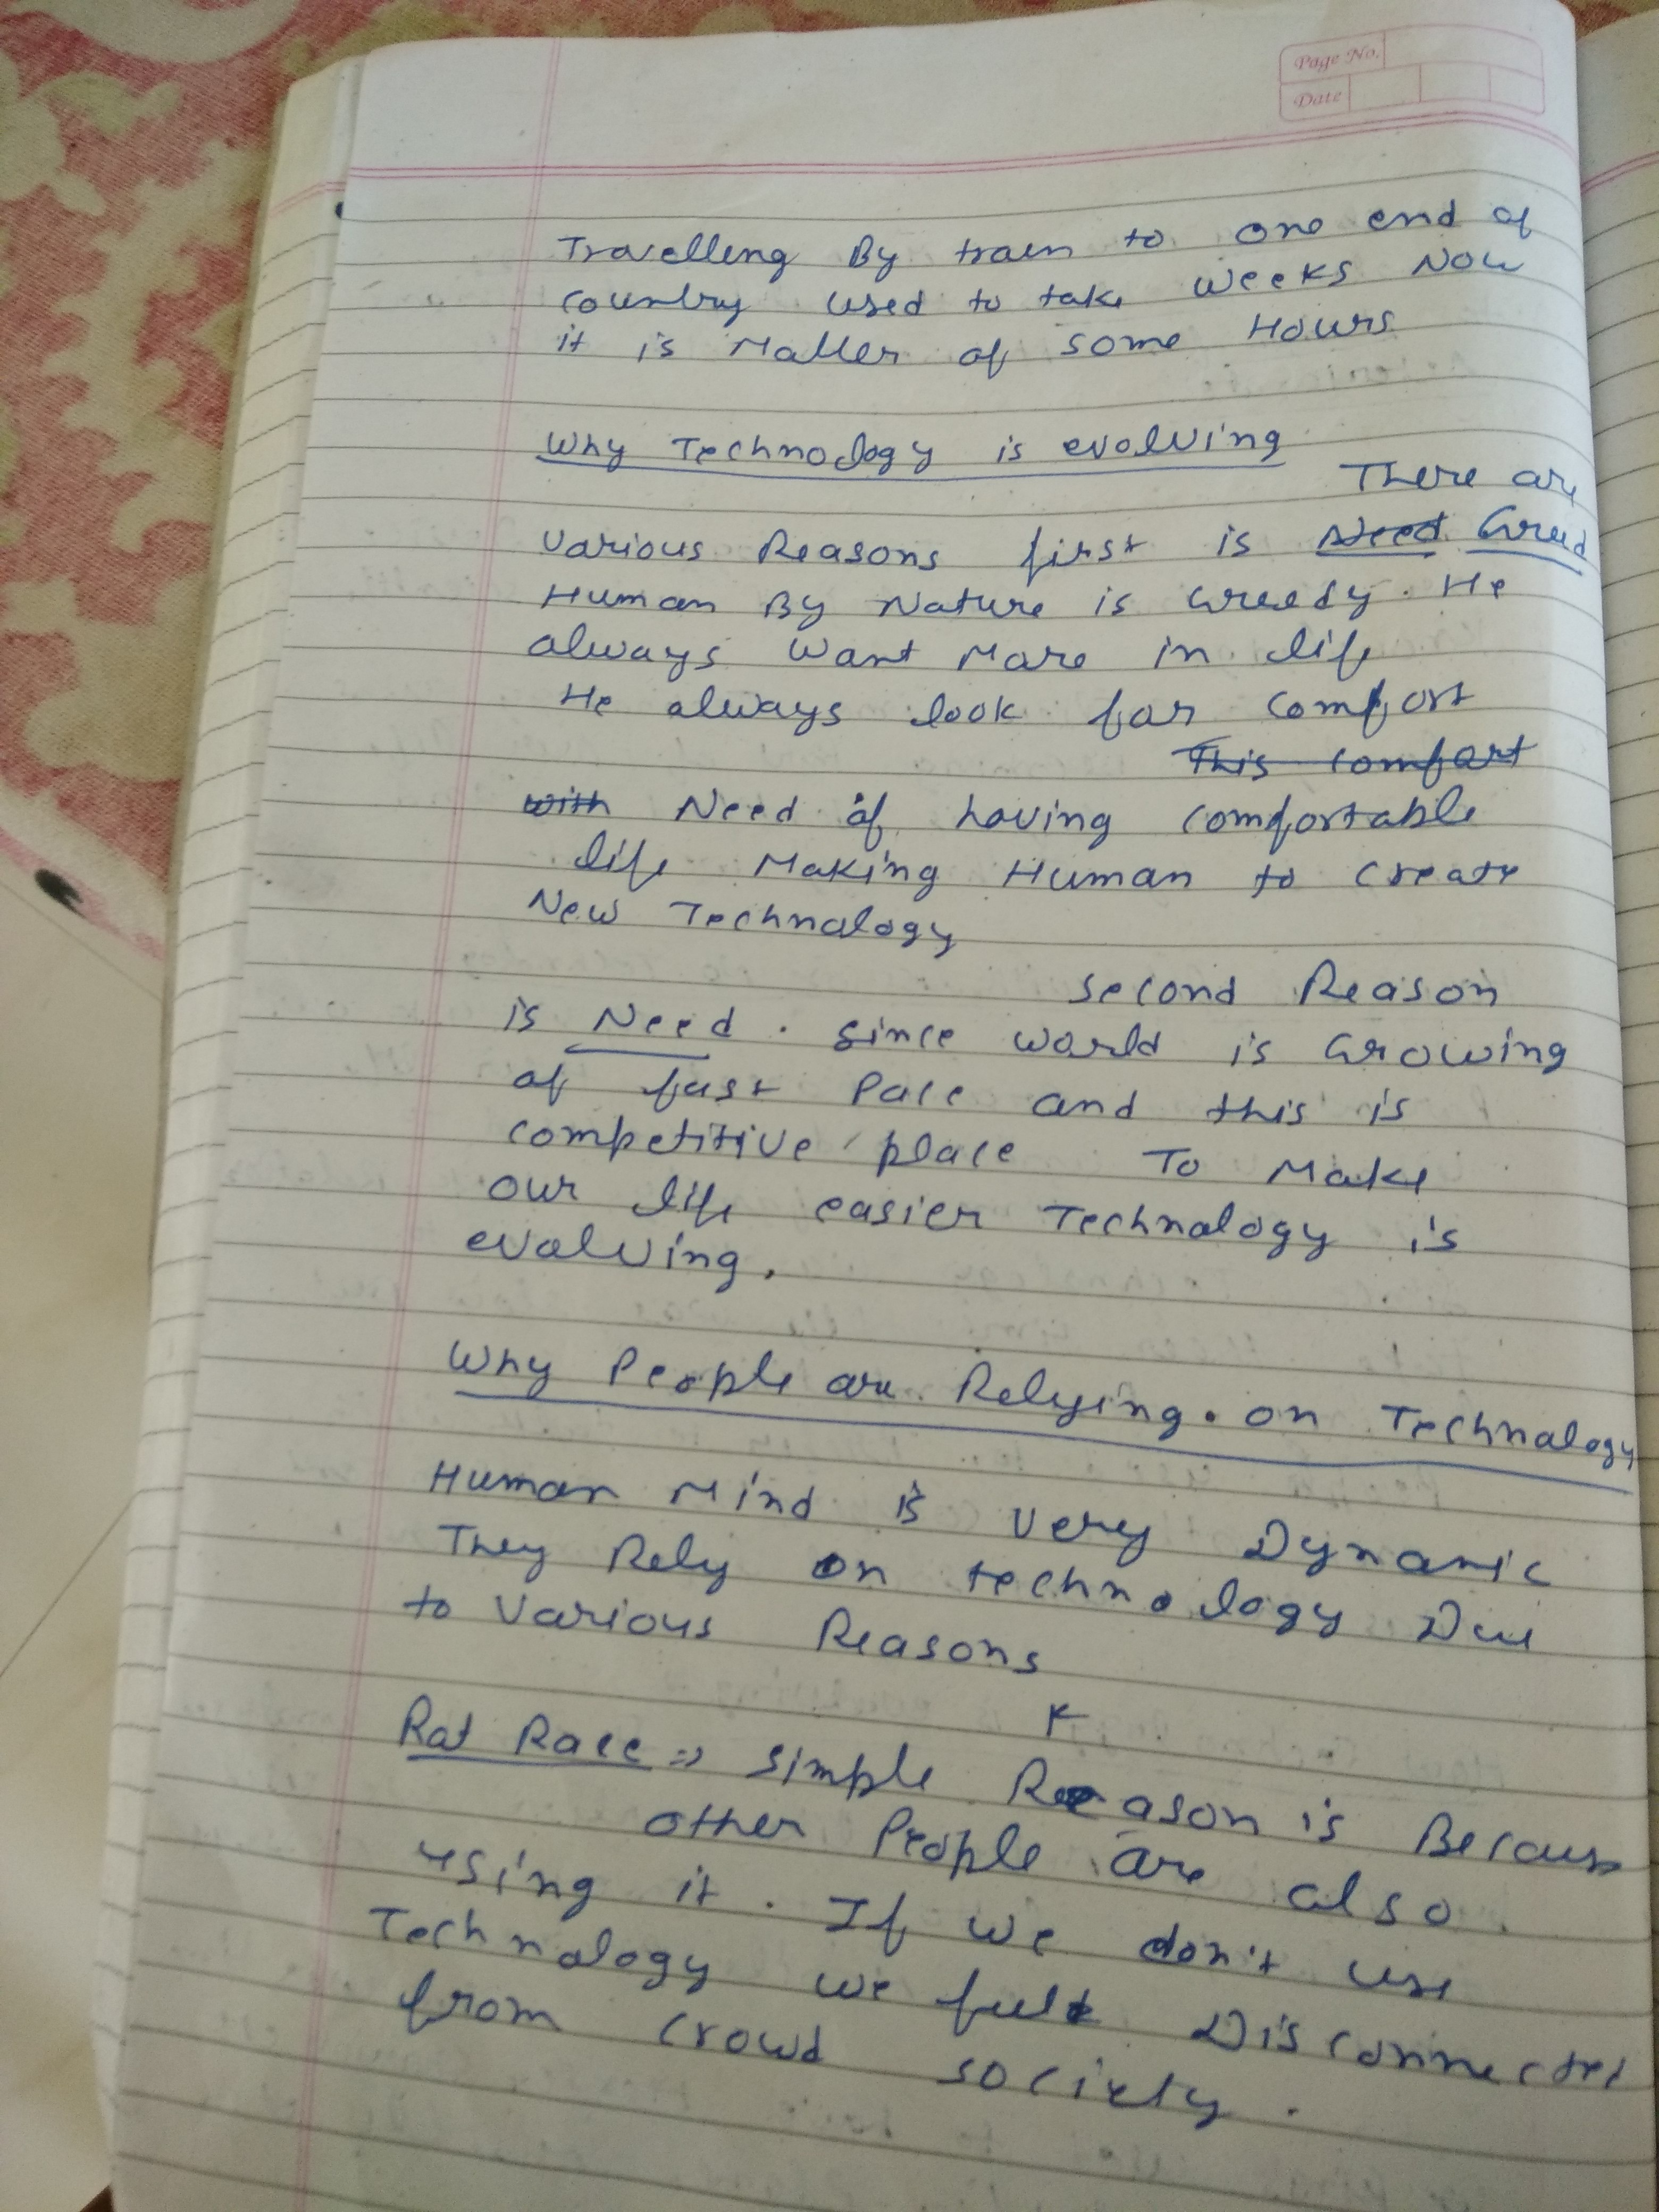 Page No.
Date
Travelling By train to one end of
country used to take weeks Now
it is Matter of some Hours
Why Technology is evolving
There are
various Reasons first is Need Greed
Human By Nature is Greedy. He
always want More in life
He always look for comfort
This comfort
with Need of having comfortable
life Making Human to create
New Technology
second Reason
is Need. since world is Growing
at fast Pace and this is
competitive place To Make
our life easier Technology is
evolving.
Why People are Relying on Technology
Human Mind is very Dynamic
They Rely on technology Due
to Various Reasons
Rat Race => simple Reason is Because
other People are also
using it. If we don't use
Technology we feel Disconnected
from crowd society.